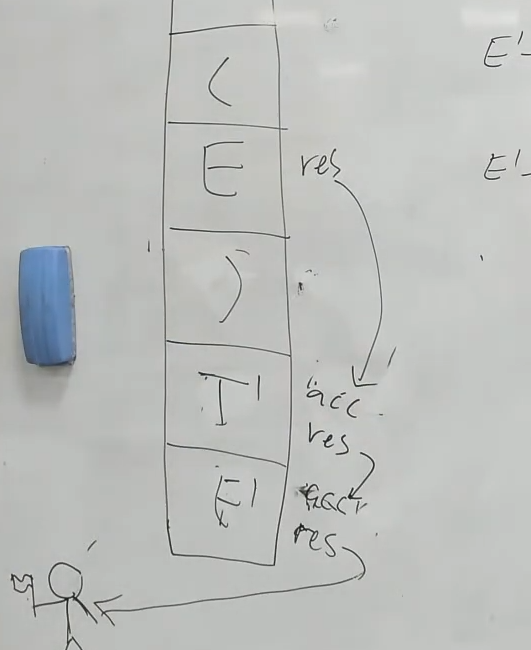 (
E res
)
T' acc
res
E' acc
res
E'-
E'-